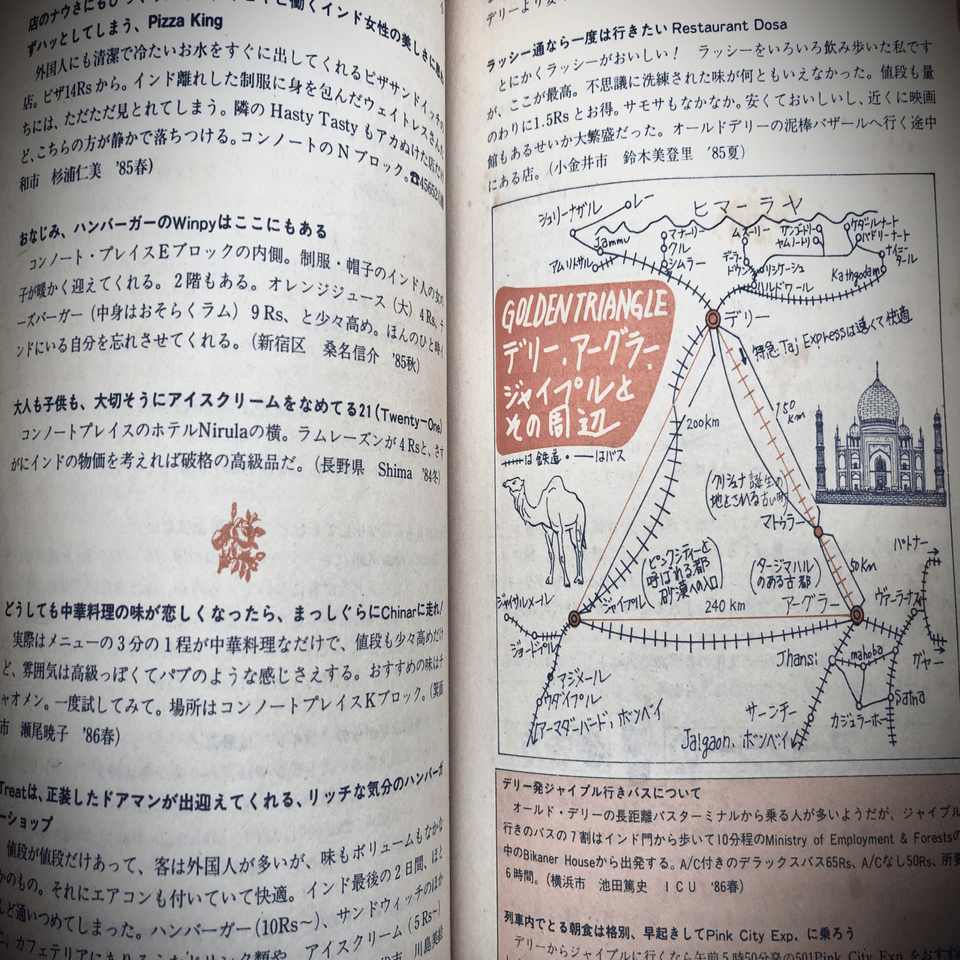 店のナウさにもび
働くインド女性の美しさに思わ
ずハッとしてしまう、Pizza King
外国人にも清潔で冷たいお水をすぐに出してくれるピザサンドイッチの
店。ピザ14Rsから。インド離れした制服に身を包んだウェイトレスさんた
ちには、ただただ見とれてしまう。隣の Hasty Tasty もアカぬけた店だけ
ど、こちらの方が静かで落ちつける。コンノートの N ブロック。☎45652
和市 杉浦仁美 '85春)
おなじみ、ハンバーガーのWinpyはここにもある
コンノート・プレイスEブロックの内側。制服・帽子のインド人の女の
子が暖かく迎えてくれる。2階もある。オレンジジュース(大)4Rs、チ
ーズバーガー(中身はおそらくラム)9Rs、と少々高め。ほんのひと時イ
ンドにいる自分を忘れさせてくれる。(新宿区 桑名信介 '85秋)
大人も子供も、大切そうにアイスクリームをなめてる21(Twenty-One)
コンノートプレイスのホテルNirulaの横。ラムレーズンが4Rsと、さす
がにインドの物価を考えれば破格の高級品だ。(長野県 Shima '84冬)
どうしても中華料理の味が恋しくなったら、まっしぐらにChinarに走れ!
実際はメニューの3分の1程が中華料理なだけで、値段も少々高めだけ
ど、雰囲気は高級っぽくてパブのような感じさえする。おすすめの味はチ
ャオメン。一度試してみて。場所はコンノートプレイスKブロック。(箕面
市 瀬尾暁子 '86春)
Treatは、正装したドアマンが出迎えてくれる、リッチな気分のハンバーガ
ーショップ
値段が値段だけあって、客は外国人が多いが、味もボリュームもなかな
かのもの。それにエアコンも付いていて快適。インド最後の2日間、ほと
んど通いつめてしまった。ハンバーガー(10Rs〜)、サンドウィッチのほか
に、カフェテリアにあるようなドリンク類や、アイスクリーム(5Rs〜)
市 川島美絵
デリーより
ラッシー通なら一度は行きたい Restaurant Dosa
とにかくラッシーがおいしい! ラッシーをいろいろ飲み歩いた私です
が、ここが最高。不思議に洗練された味が何ともいえなかった。値段も量
のわりに1.5Rs とお得。サモサもなかなか。安くておいしいし、近くに映画
館もあるせいか大繁盛だった。オールドデリーの泥棒バザールへ行く途中
にある店。(小金井市 鈴木美登里 '85夏)
シュリーナガル
レー
ヒマーラヤ
Jammu
アムリトサル
マナーリー
クル
シムラー
ムスーリー
デラー
ドゥン
ガンゴトリー
ヤムノートリ
ケダルナート
バドリーナート
ナイニー
タール
リシケーシュ
ハルドワール
Kathgodam
GOLDEN TRIANGLE
デリー、アーグラー、
ジャイプルと
その周辺
は鉄道・―はバス
デリー
特急 Taj Expressは速くて快適
200km
150
km
(クリシュナ誕生の
地とされる古い町)
マトゥラー
50km
パトナー
(ピンクシティーと
呼ばれる都
砂漠への入口)
(タージマハル
のある古都)
ジャイサルメール
ジャイプル
240 km
アーグラー
ヴァーラナスィ
ジョードプル
Jhansi
mahoba
ガヤー
アジメール
ウダイプル
アーマダーバード、ボンベイ
サーンチー
Jalgaon、ボンベイ
カジュラーホー
Satna
デリー発ジャイプル行きバスについて
オールド・デリーの長距離バスターミナルから乗る人が多いようだが、ジャイプル
行きのバスの7割はインド門から歩いて10分程のMinistry of Employment & Forestsの
中のBikaner Houseから出発する。A/C付きのデラックスバス65Rs、A/Cなし50Rs、所要
6時間。(横浜市 池田篤史 ICU '86春)
列車内でとる朝食は格別、早起きしてPink City Exp. に乗ろう
デリーからジャイプルに行くなら午前5時50分発の501Pink City Exp.をおすす